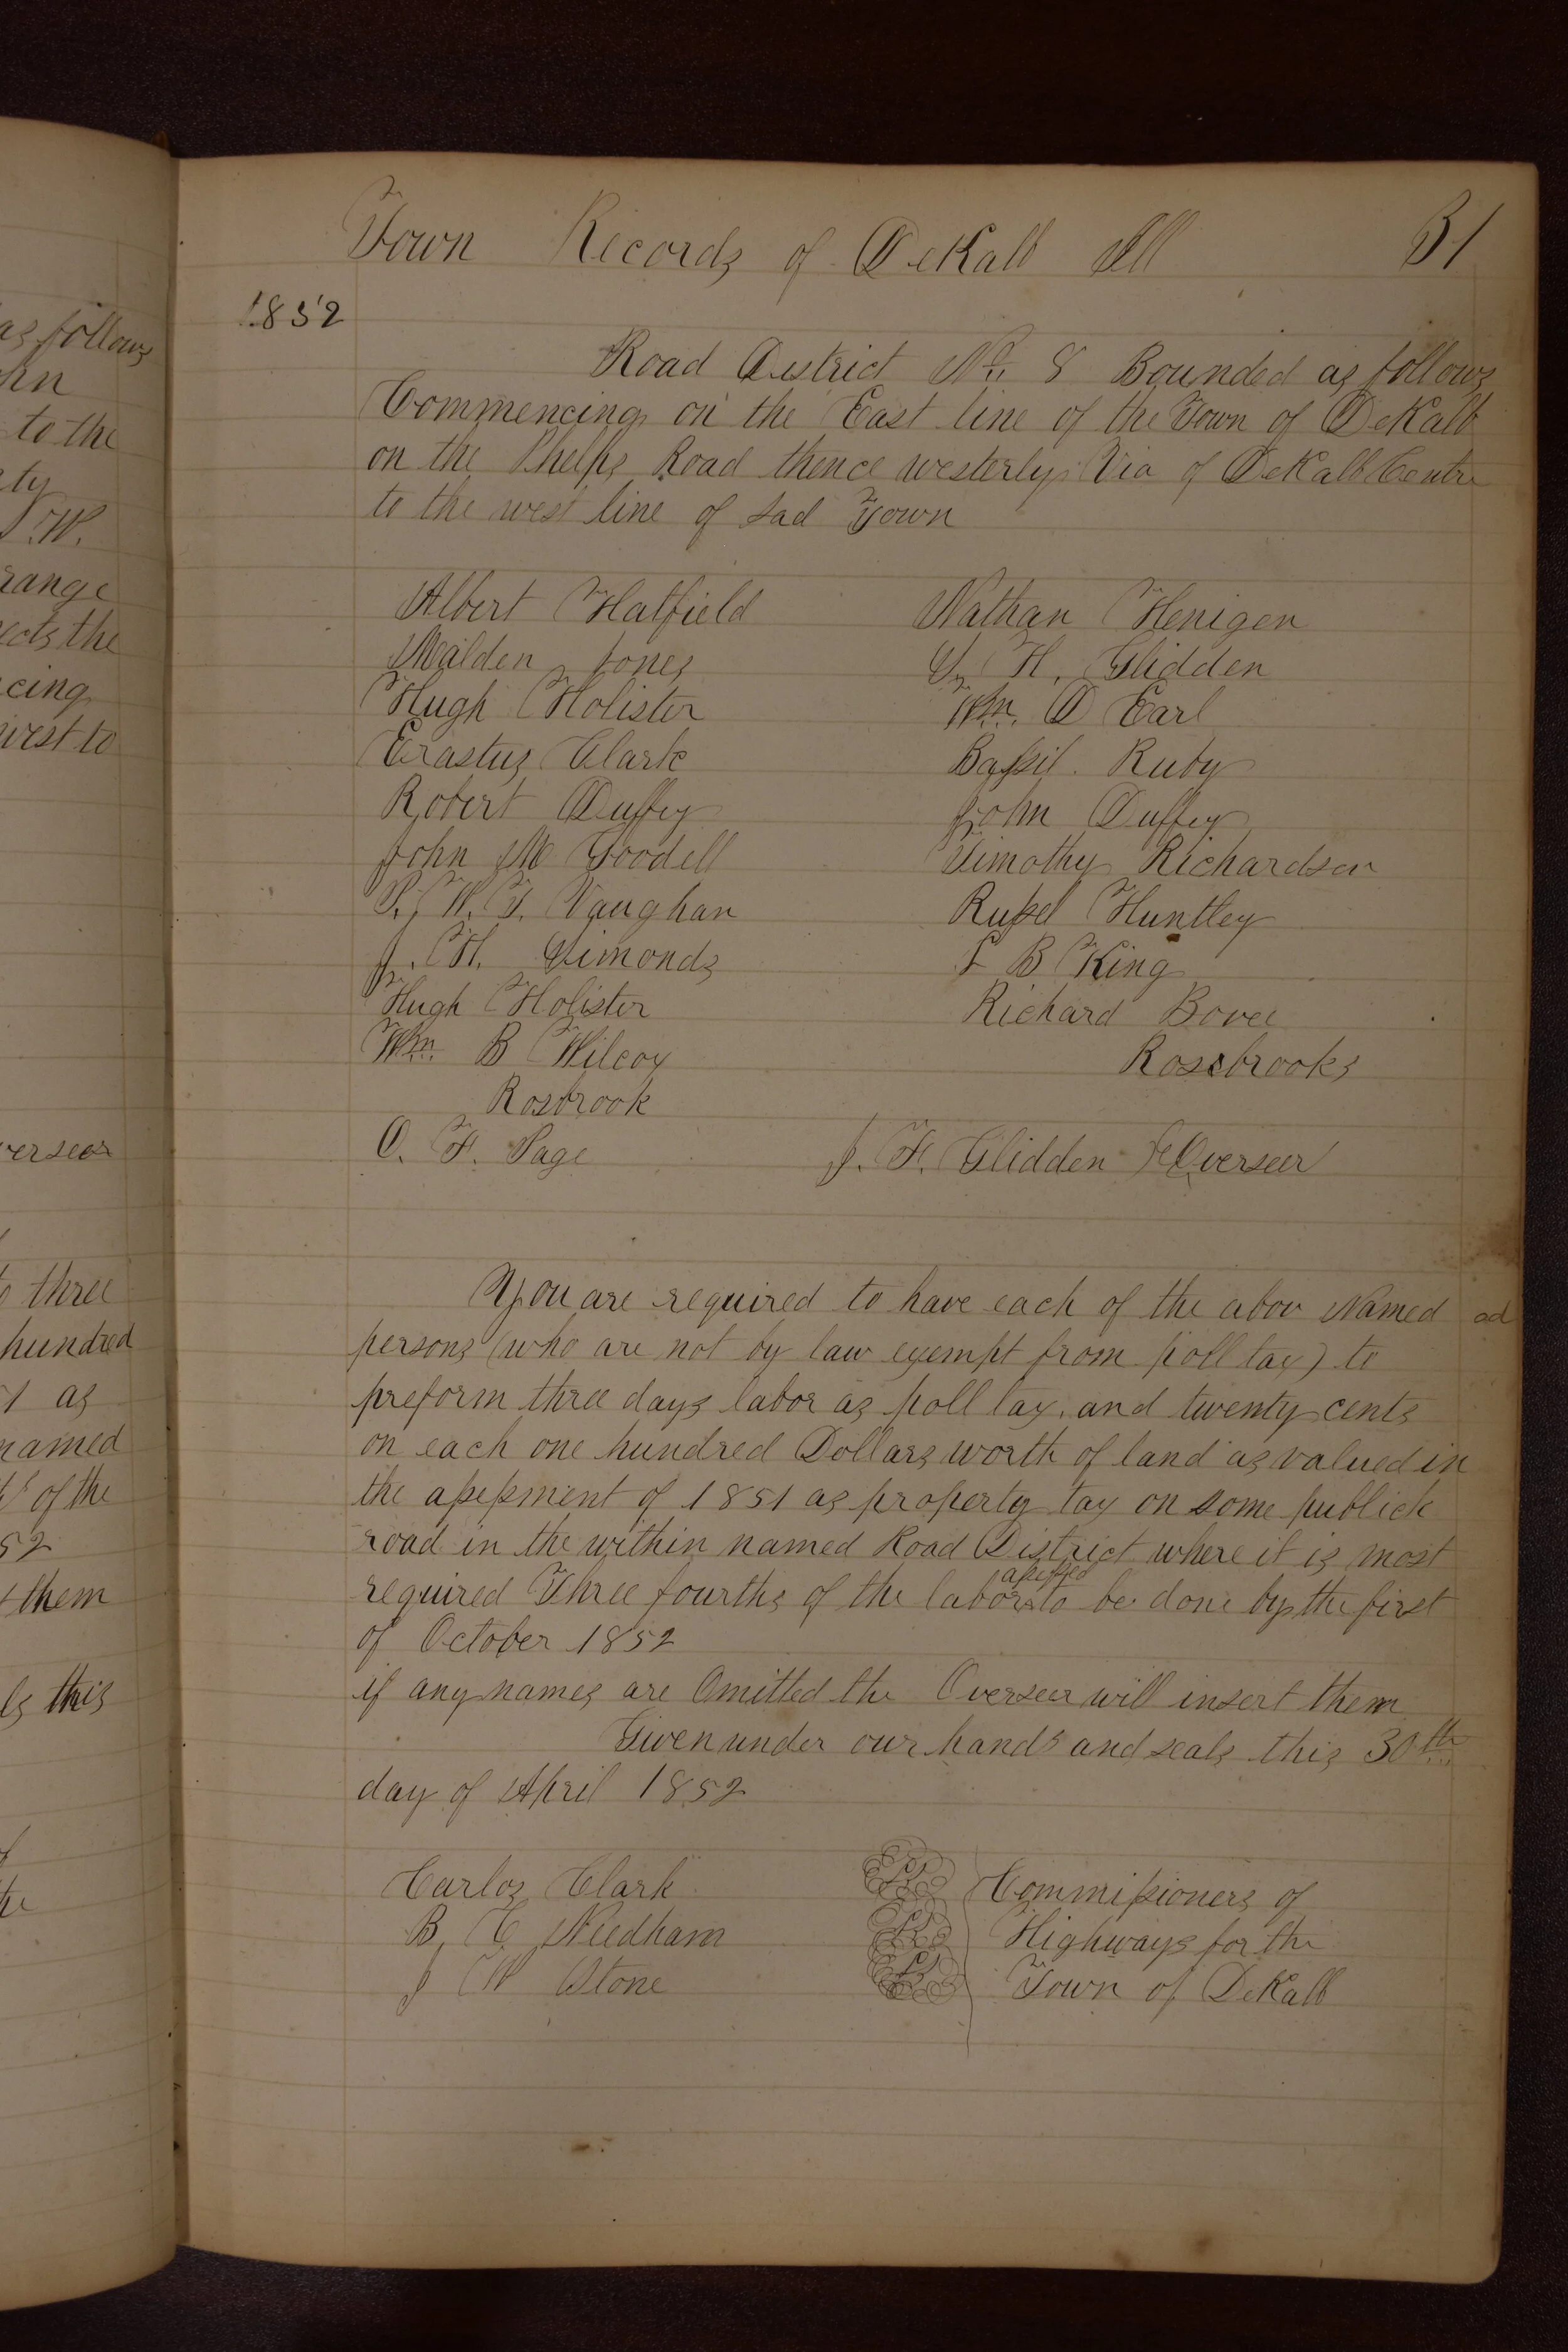 Town Records of DeKalb Ill 31
1852
Road District No. 8 Bounded as follows
Commencing on the East line of the Town of DeKalb
on the Phelps Road thence westerly Via of DeKalb Centre
to the west line of sad Town
Albert Hatfield Nathan Henigen
Malden Jones S. H. Glidden
Hugh Holister Wm. D Earl
Erastus Clark Bassil Ruby
Robert Duffey John Duffey
John M Goodell Timothy Richardson
P. W. T. Vaughan Russel Huntley
J. H. Simonds F B King
Hugh Holister Richard Bovee
Wm. B Wilcox Rosebrooks
Rosbrook
O. F. Page J. F. Glidden Overseer
You are required to have each of the abov Named
persons (who are not by law exempt from poll tax) to
preform three days labor as poll tax, and twenty cents
on each one hundred Dollars worth of land as valued in
the assessment of 1851 as property tax on some publick
road in the within named Road District where it is most
required Three fourths of the labor assessed to be done by the first
of October 1852
if any names are Omitted the Overseer will insert them
Given under our hands and seals this 30th
day of April 1852
Carlos Clark Commissioners of
B. C Needham Highways for the
J W Stone Town of DeKalb
as follows
to the
W.
range
the
west to
three
hundred
as
named
of the
52
them
this